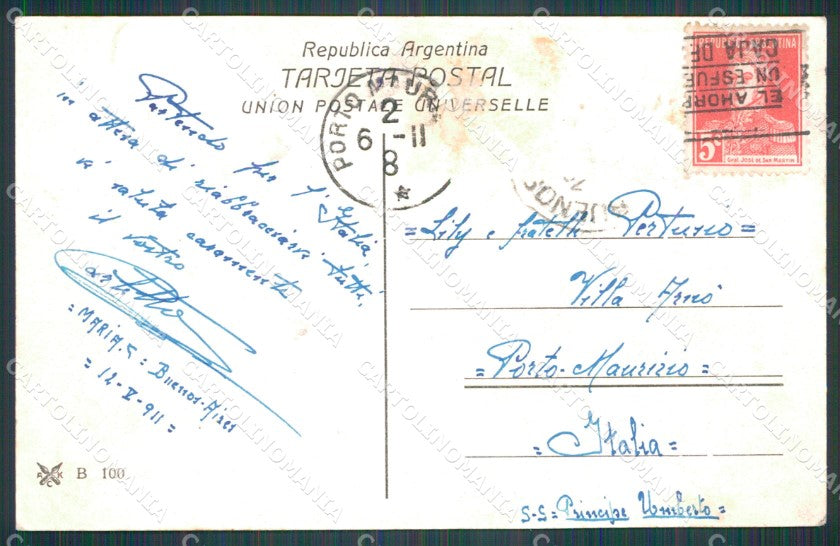 Republica Argentina
TARJETA POSTAL
UNION POSTALE UNIVERSELLE
PORTO MAURI
2
6 -11
8
EL AHORR
UN ESFUE
CAJA DE
REPUBLICA ARGENTINA
5c
Gral. JOSÉ DE SAN MARTIN
BUENOS
Partendo per l'Italia,
in attesa di riabbracciarvi tutti,
vi saluta caramente
il vostro
= MARIA G = Buenos-Aires
= 12-V-911 =
= Lily e fratelli Pertuno =
Villa Arnò
= Porto-Maurizio =
= Italia =
S-S = Principe Umberto =
B 100
CARTOLINOMANIA